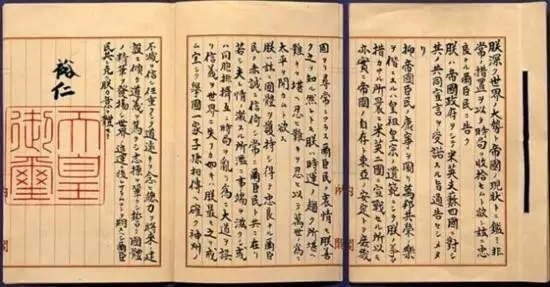 朕深ク世界ノ大勢ト帝國ノ現狀トニ鑑ミ非
常ノ措置ヲ以テ時局ヲ收拾セムト欲シ茲ニ忠
良ナル爾臣民ニ告ク
朕ハ帝國政府ヲシテ米英支蘇四國ニ對シ
其ノ共同宣言ヲ受諾スル旨通告セシメタ
リ
抑帝國臣民ノ康寧ヲ圖リ萬邦共榮ノ樂
ヲ偕ニスルハ皇祖皇宗ノ遺範ニシテ朕ノ拳々
措カサル所曩ニ米英二國ニ宣戰セル所以モ
亦實ニ帝國ノ自存ト東亞ノ安定トヲ庶幾
固ヨリ尋常ニアラス爾臣民ノ衷情モ朕善
ク之ヲ知ル然レトモ朕ハ時運ノ趨ク所堪ヘ
難キヲ堪ヘ忍ヒ難キヲ忍ヒ以テ萬世ノ爲ニ
太平ヲ開カムト欲ス
朕ハ茲ニ國體ヲ護持シ得テ忠良ナル爾臣
民ノ赤誠ニ信倚シ常ニ爾臣民ト共ニ在リ
若シ夫レ情ノ激スル所濫ニ事端ヲ滋クシ或
ハ同胞排擠互ニ時局ヲ亂リ爲ニ大道ヲ誤
リ信義ヲ世界ニ失フカ如キハ朕最モ之ヲ戒
ム宜シク擧國一家子孫相傳ヘ確ク神州ノ
不滅ヲ信シ任重クシテ道遠キヲ念ヒ總力ヲ將來ノ建
設ニ傾ケ道義ヲ篤クシ志操ヲ鞏クシ誓テ國體
ノ精華ヲ發揚シ世界ノ進運ニ後レサラムコトヲ期スヘシ爾臣
民其レ克ク朕カ意ヲ體セヨ
裕仁
天皇
御璽